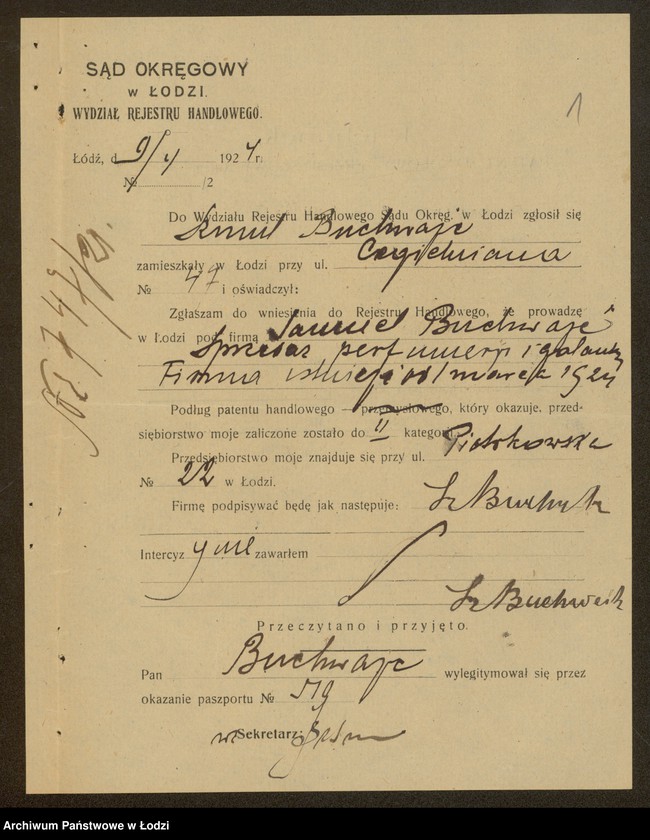 1
SĄD OKRĘGOWY
W ŁODZI.
WYDZIAŁ REJESTRU HANDLOWEGO.
Łódź, d 9/4 1924 r.
№ /2
Do Wydziału Rejestru Handlowego Sądu Okręg. w Łodzi zgłosił się
Buchwajc
zamieszkały w Łodzi przy ul. Cegielniana
№ 47 i oświadczył:
Zgłaszam do wniesienia do Rejestru Handlowego, że prowadzę
w Łodzi pod firmą „Samuel Buchwajc"
Sprzedaż perfumerji i galant
Firma istnieje od 1 marca 1924
Podług patentu handlowego — przemysłowego, który okazuje, przed-
siębiorstwo moje zaliczone zostało do II kategorji
Przedsiębiorstwo moje znajduje się przy ul. Piotrkowska
№ 22 w Łodzi.
Firmę podpisywać będę jak następuje:
Intercyz zawarłem
Przeczytano i przyjęto.
Pan Buchwajc wylegitymował się przez
okazanie paszportu № 519
Sekretarz:
Archiwum Państwowe w Łodzi